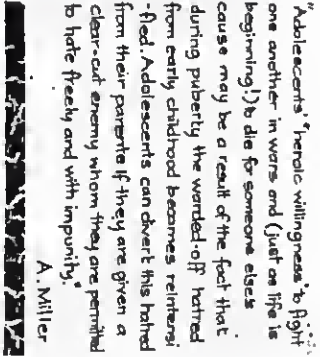 "Adolescents' "heroic willingness" to fight
one another in wars and (just as life is
beginning!) to die for someone else's
cause may be a result of the fact that
during puberty the warded-off hatred
from early childhood becomes reintensi-
-fied. Adolescents can divert this hatred
from their parents if they are given a
clear-cut enemy whom they are permitted
to hate freely and with impunity."
A. Miller